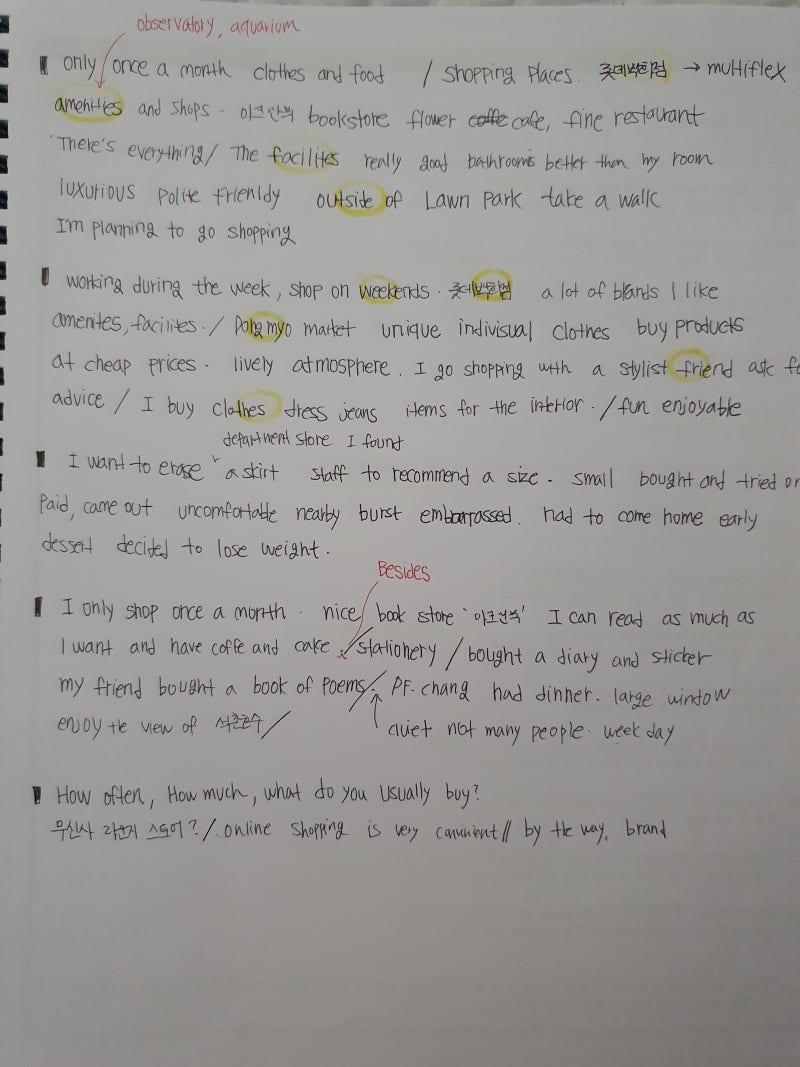 observatory, aquarium
only once a month clothes and food / shopping places. 롯데백화점 → multiflex
amenities and shops. 아크앤북 bookstore flower coffe cafe, fine restaurant
There's everything/ The facilites really good bathrooms better than my room
luxurious polite frienldy outside of Lawn Park take a walk
I'm planning to go shopping
working during the week, shop on weekends. 롯데백화점 a lot of blands I like
amenites, facilites. / Dongmyo market unique indivisual clothes buy products
at cheap prices. lively atmosphere. I go shopping with a stylist friend ask fo
advice / I buy clothes dress jeans items for the interior. / fun enjoyable
department store I found
I want to erase a skirt staff to recommend a size. small bought and tried on
Paid, came out uncomfortable nearby burst embarrassed. had to come home early
dessert decided to lose weight.
Besides
I only shop once a month. nice book store '아크앤북' I can read as much as
I want and have coffe and cake. /stationery / bought a diary and sticker
my friend bought a book of Poems/. P.F. chang had dinner. large window
enjoy the view of 석촌호수/ quiet not many people. week day
How often, How much, what do you usually buy?
무신사 라운지 스토어? /. online shopping is very convinient // by the way, brand